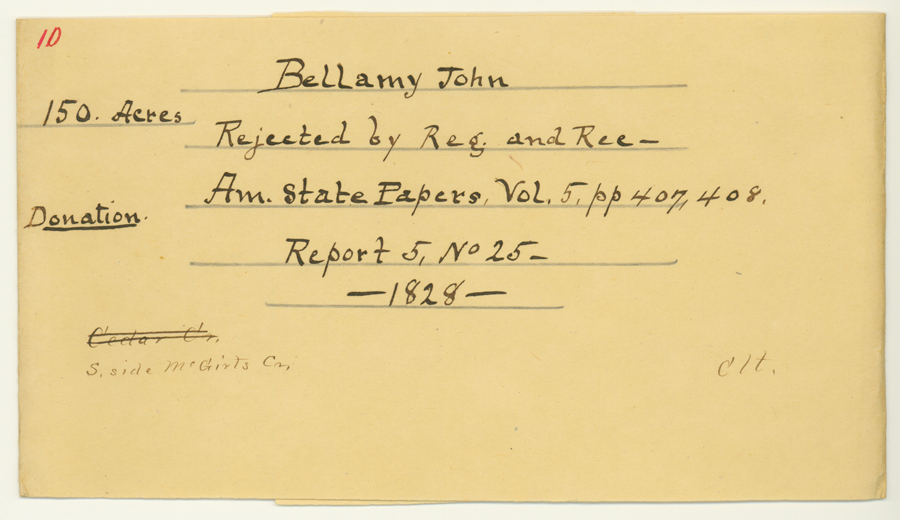 10
Bellamy John
150. Acres
Rejected by Reg. and Rec—
Am. State Papers, Vol. 5, pp 407, 408.
Donation.
Report 5, No 25—
—1828—
Cedar Cr.
S. side McGirts Cr,
Clt.